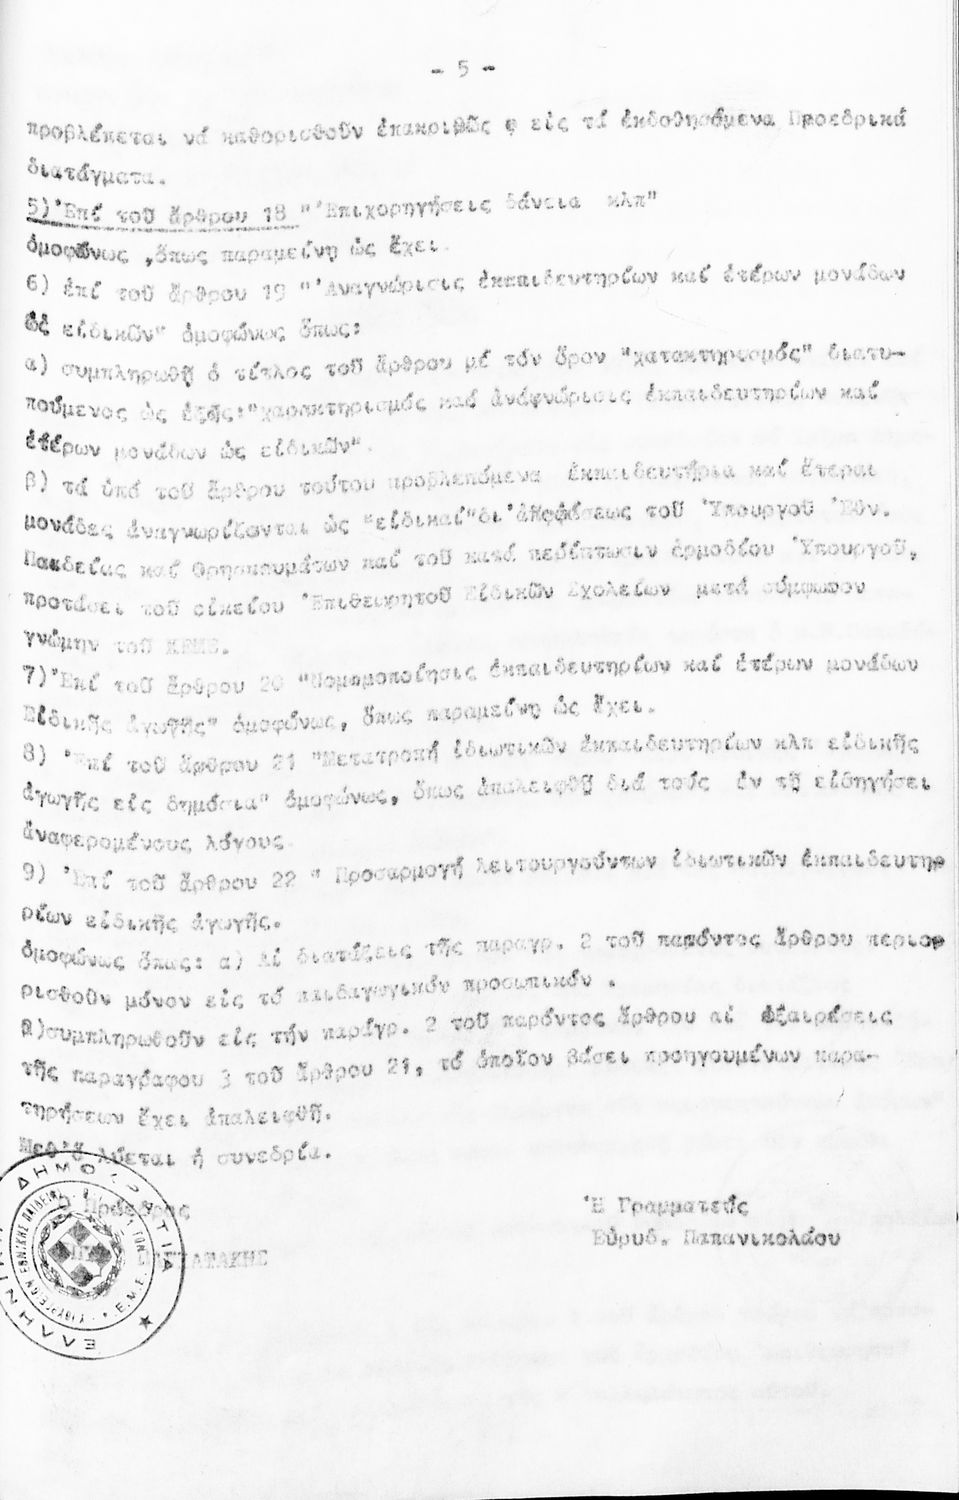 - 5 -
προβλέπεται νά καθορισθοῦν ἐπακριβῶς φ εἰς τά ἐκδοθησόμενα Προεδρικά
διατάγματα.
5)Ἐπί τοῦ ἄρθρου 18 "Ἐπιχορηγήσεις δάνεια κλπ"
ὁμοφώνως ,ὅπως παραμείνῃ ὡς ἔχει.
6) ἐπί τοῦ ἄρθρου 19 "Ἀναγνώρισις ἐκπαιδευτηρίων καί ἑτέρων μονάδων
ὡς εἰδικῶν" ὁμοφώνως ὅπως:
α) συμπληρωθῇ ὁ τίτλος τοῦ ἄρθρου μέ τόν ὅρον "χατακτηρισμός" διατυ-
πούμενος ὡς ἑξῆς:"χαρακτηρισμός καί ἀνάφνώρισις ἐκπαιδευτηρίων καί
ἑτέρων μονάδων ὡς εἰδικῶν".
β) τά ὑπό τοῦ ἄρθρου τούτου προβλεπόμενα ἐκπαιδευτήρια καί ἕτεραι
μονάδες ἀναγνωρίζονται ὡς "εἰδικαί"δι'ἀποφάσεως τοῦ Ὑπουργοῦ Ἐθν.
Παιδείας καί Θρησκευμάτων καί τοῦ κατά περίπτωσιν ἁρμοδίου Ὑπουργοῦ,
προτάσει τοῦ οἰκείου Ἐπιθεωρητοῦ Εἰδικῶν Σχολείων μετά σύμφωνον
γνώμην τοῦ ΚΕΜΕ.
7)Ἐπί τοῦ ἄρθρου 20 "Νομιμοποίησις ἐκπαιδευτηρίων καί ἑτέρων μονάδων
Εἰδικῆς ἀγωγῆς" ὁμοφώνως, ὅπως παραμείνῃ ὡς ἔχει.
8) Ἐπί τοῦ ἄρθρου 21 "Μετατροπή ἰδιωτικῶν ἐκπαιδευτηρίων κλπ εἰδικῆς
ἀγωγῆς εἰς δημόσια" ὁμοφώνως, ὅπως ἀπαλειφθῇ διά τούς ἐν τῇ εἰσηγήσει
ἀναφερομένους λόγους.
9) Ἐπί τοῦ ἄρθρου 22 " Προσαρμογή λειτουργούντων ἰδιωτικῶν ἐκπαιδευτη
ρίων εἰδικῆς ἀγωγῆς.
ὁμοφώνως ὅπως: α) Αἱ διατάξεις τῆς παραγρ. 2 τοῦ παρόντος ἄρθρου περιορ
ρισθοῦν μόνον εἰς τό παιδαγωγικόν προσωπικόν .
β)συμπληρωθοῦν εἰς τήν παράγρ. 2 τοῦ παρόντος ἄρθρου αἱ ἐξαιρέσεις
τῆς παραγράφου 3 τοῦ ἄρθρου 21, τό ὁποῖον βάσει προηγουμένων παρα-
τηρήσεων ἔχει ἀπαλειφθῇ.
Μεθ'ὅ λύεται ἡ συνεδρία.
Ὁ Πρόεδρος
Ἡ Γραμματεύς
Εὐρυδ. Παπανικολάου
ΕΛΛΗΝΙΚΗ ΔΗΜΟΚΡΑΤΙΑ